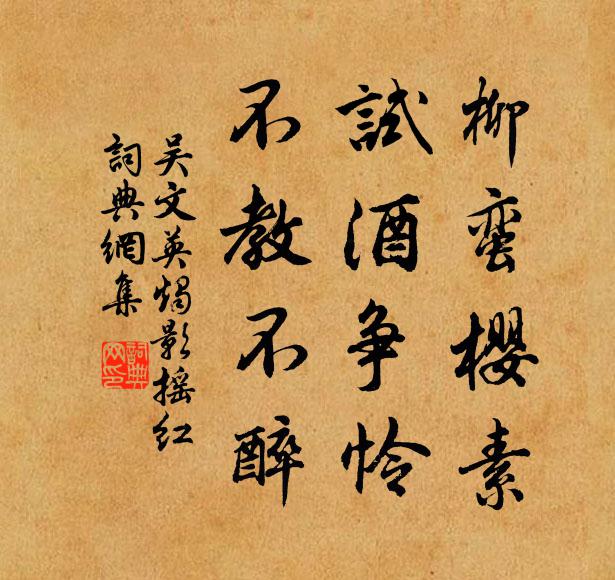 柳蛮樱素
試酒争怜
不教不醉
吴文英燭影摇红
詞典網集
詞典網印